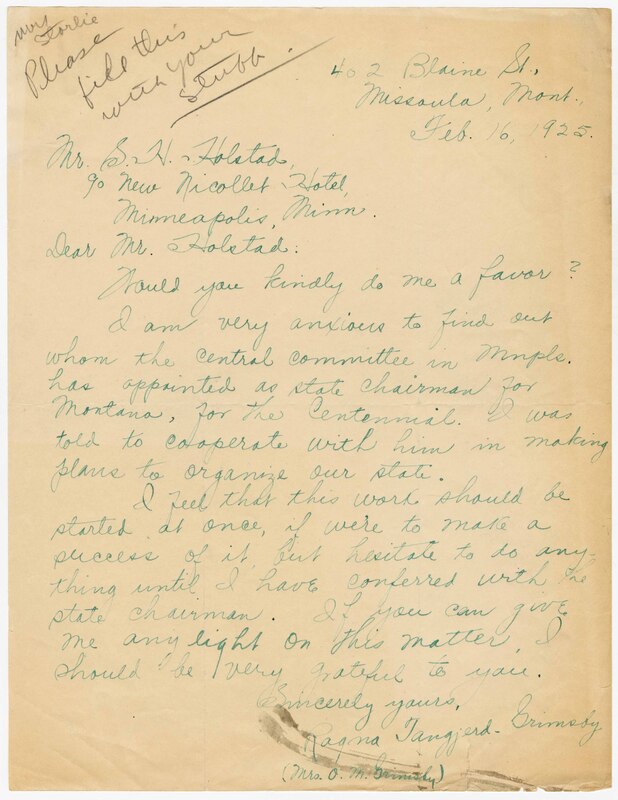 Mrs Storlie
Please
file this
with your
stubb.
402 Blaine St.,
Missoula, Mont.,
Feb. 16, 1925.
Mr. S. H. Holstad,
℅ New Nicollet Hotel,
Minneapolis, Minn.
Dear Mr. Holstad:
Would you kindly do me a favor?
I am very anxious to find out
whom the central committee in Mnpls.
has appointed as state chairman for
Montana, for the Centennial. I was
told to cooperate with him in making
plans to organize our state.
I feel that this work should be
started at once, if were to make a
success of it, but hesitate to do any-
thing until I have conferred with the
state chairman. If you can give
me any light on this matter, I
should be very grateful to you.
Sincerely yours,
Ragna Tangjerd-Grimsby
(Mrs. O. M. Grimsby)